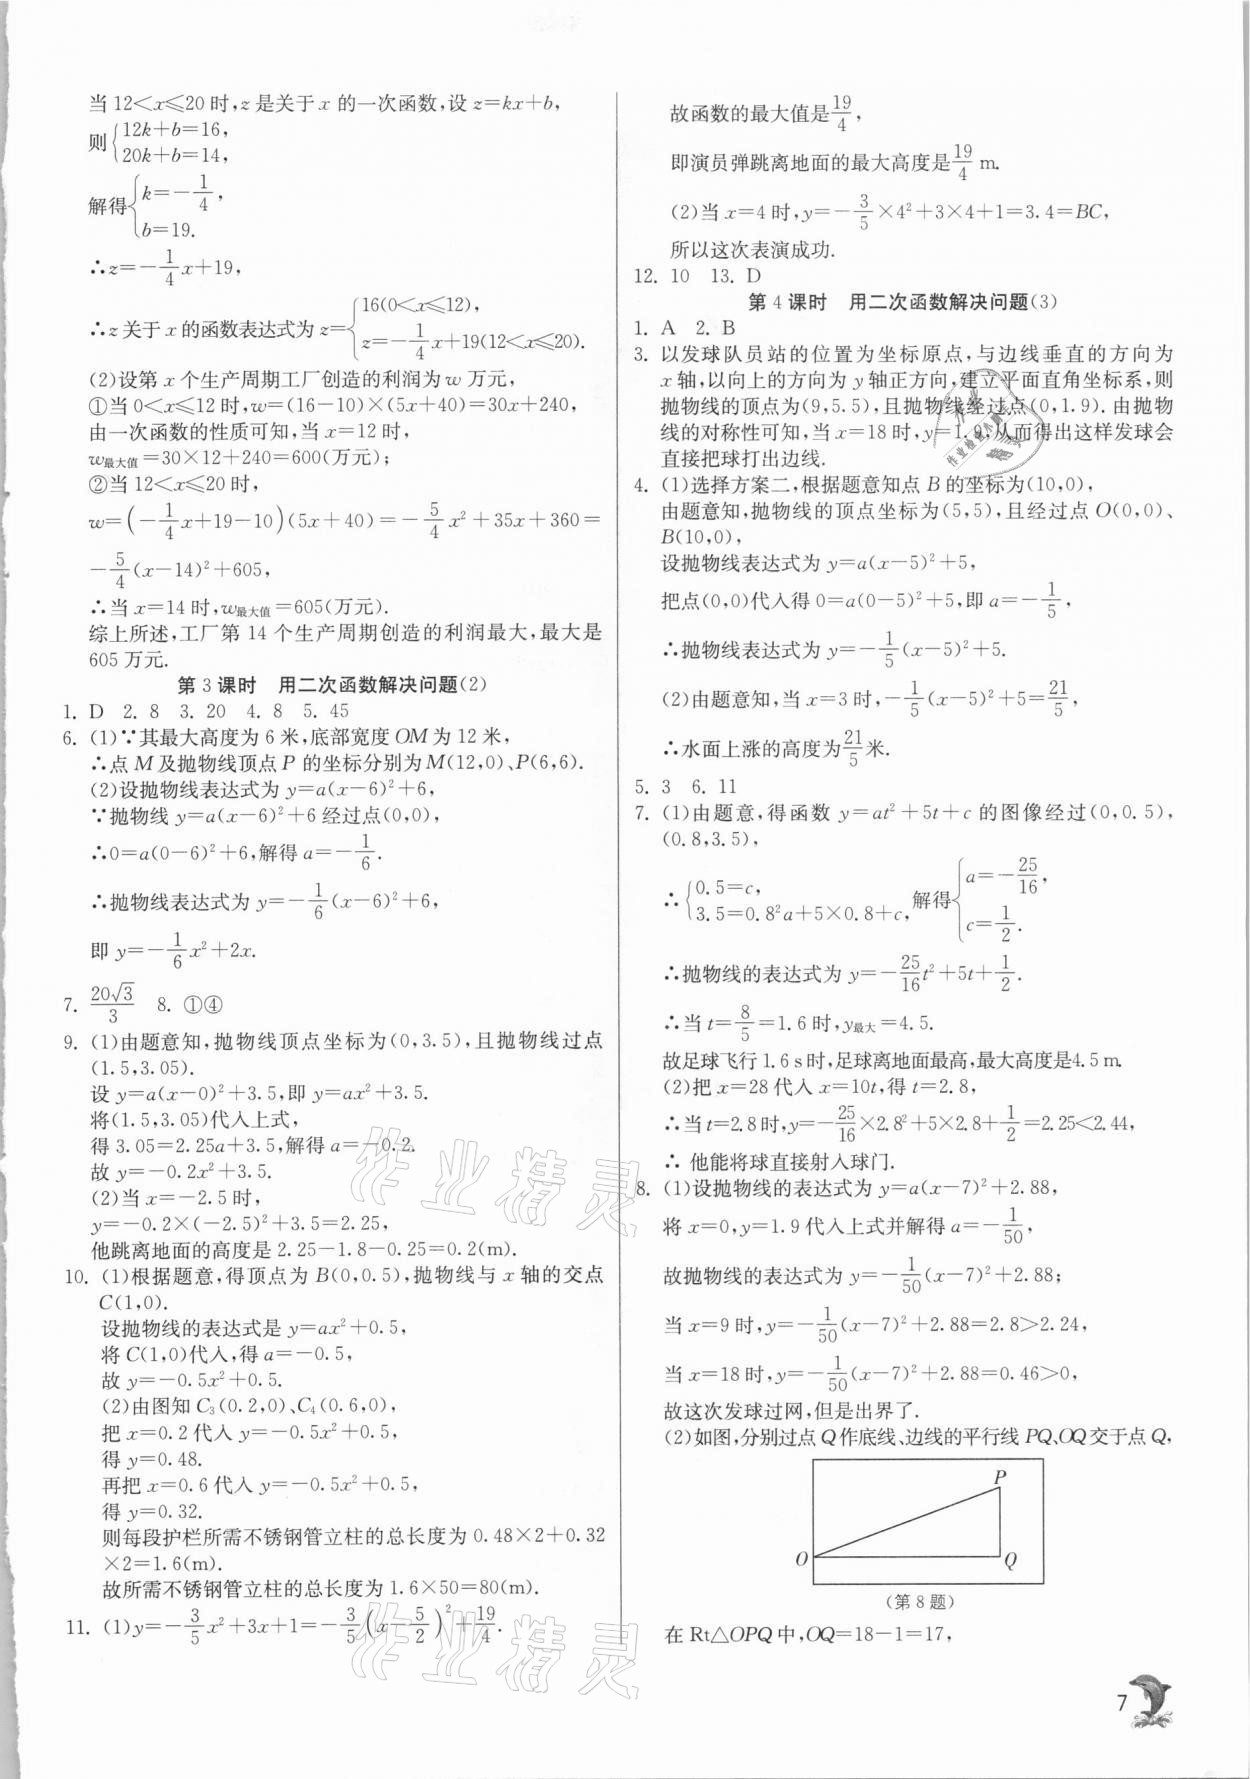 当 12<x≤20 时,z 是关于 x 的一次函数,设 z=kx+b,
则{12k+b=16,
20k+b=14,
解得{k=-1/4,
b=19.
∴z=-1/4x+19,
∴z 关于 x 的函数表达式为 z={16(0<x≤12),
z=-1/4x+19(12<x≤20).
(2)设第 x 个生产周期工厂创造的利润为 w 万元,
①当 0<x≤12 时,w=(16-10)×(5x+40)=30x+240,
由一次函数的性质可知,当 x=12 时,
w最大值=30×12+240=600(万元);
②当 12<x≤20 时,
w=(-1/4x+19-10)(5x+40)=-5/4x²+35x+360=
-5/4(x-14)²+605,
∴当 x=14 时,w最大值=605(万元).
综上所述,工厂第 14 个生产周期创造的利润最大,最大是
605 万元.
第 3 课时 用二次函数解决问题(2)
1. D 2. 8 3. 20 4. 8 5. 45
6. (1)∵其最大高度为 6 米,底部宽度 OM 为 12 米,
∴点 M 及抛物线顶点 P 的坐标分别为 M(12,0)、P(6,6).
(2)设抛物线表达式为 y=a(x-6)²+6,
∵抛物线 y=a(x-6)²+6 经过点(0,0),
∴0=a(0-6)²+6,解得 a=-1/6.
∴抛物线表达式为 y=-1/6(x-6)²+6,
即 y=-1/6x²+2x.
7. 20√3/3 8. ①④
9. (1)由题意知,抛物线顶点坐标为(0,3.5),且抛物线过点
(1.5,3.05).
设 y=a(x-0)²+3.5,即 y=ax²+3.5.
将(1.5,3.05)代入上式,
得 3.05=2.25a+3.5,解得 a=-0.2.
故 y=-0.2x²+3.5.
(2)当 x=-2.5 时,
y=-0.2×(-2.5)²+3.5=2.25,
他跳离地面的高度是 2.25-1.8-0.25=0.2(m).
10. (1)根据题意,得顶点为 B(0,0.5),抛物线与 x 轴的交点
C(1,0).
设抛物线的表达式是 y=ax²+0.5,
将 C(1,0)代入,得 a=-0.5,
故 y=-0.5x²+0.5.
(2)由图知 C₃(0.2,0)、C₄(0.6,0),
把 x=0.2 代入 y=-0.5x²+0.5,
得 y=0.48.
再把 x=0.6 代入 y=-0.5x²+0.5,
得 y=0.32.
则每段护栏所需不锈钢管立柱的总长度为 0.48×2+0.32
×2=1.6(m).
故所需不锈钢管立柱的总长度为 1.6×50=80(m).
11. (1)y=-3/5x²+3x+1=-3/5(x-5/2)²+19/4.
故函数的最大值是19/4,
即演员弹跳离地面的最大高度是19/4 m.
(2)当 x=4 时,y=-3/5×4²+3×4+1=3.4=BC,
所以这次表演成功.
12. 10 13. D
第 4 课时 用二次函数解决问题(3)
1. A 2. B
3. 以发球队员站的位置为坐标原点,与边线垂直的方向为
x 轴,以向上的方向为 y 轴正方向,建立平面直角坐标系,则
抛物线的顶点为(9,5.5),且抛物线经过点(0,1.9).由抛物
线的对称性可知,当 x=18 时,y=1.9,从而得出这样发球会
直接把球打出边线.
4. (1)选择方案二,根据题意知点 B 的坐标为(10,0),
由题意知,抛物线的顶点坐标为(5,5),且经过点 O(0,0)、
B(10,0),
设抛物线表达式为 y=a(x-5)²+5,
把点(0,0)代入得 0=a(0-5)²+5,即 a=-1/5,
∴抛物线表达式为 y=-1/5(x-5)²+5.
(2)由题意知,当 x=3 时,-1/5(x-5)²+5=21/5,
∴水面上涨的高度为21/5米.
5. 3 6. 11
7. (1)由题意,得函数 y=at²+5t+c 的图像经过(0,0.5),
(0.8,3.5),
∴{0.5=c,
3.5=0.8²a+5×0.8+c,解得{a=-25/16,
c=1/2.
∴抛物线的表达式为 y=-25/16t²+5t+1/2.
∴当 t=8/5=1.6 时,y最大=4.5.
故足球飞行 1.6 s时,足球离地面最高,最大高度是4.5 m.
(2)把 x=28 代入 x=10t,得 t=2.8,
∴当 t=2.8 时,y=-25/16×2.8²+5×2.8+1/2=2.25<2.44,
∴ 他能将球直接射入球门.
8. (1)设抛物线的表达式为 y=a(x-7)²+2.88,
将 x=0,y=1.9 代入上式并解得 a=-1/50,
故抛物线的表达式为 y=-1/50(x-7)²+2.88;
当 x=9 时,y=-1/50(x-7)²+2.88=2.8>2.24,
当 x=18 时,y=-1/50(x-7)²+2.88=0.46>0,
故这次发球过网,但是出界了.
(2)如图,分别过点 Q 作底线、边线的平行线 PQ、OQ 交于点 Q,
P
O
Q
(第 8 题)
在 Rt△OPQ 中,OQ=18-1=17,
7
作业精灵
作业精灵